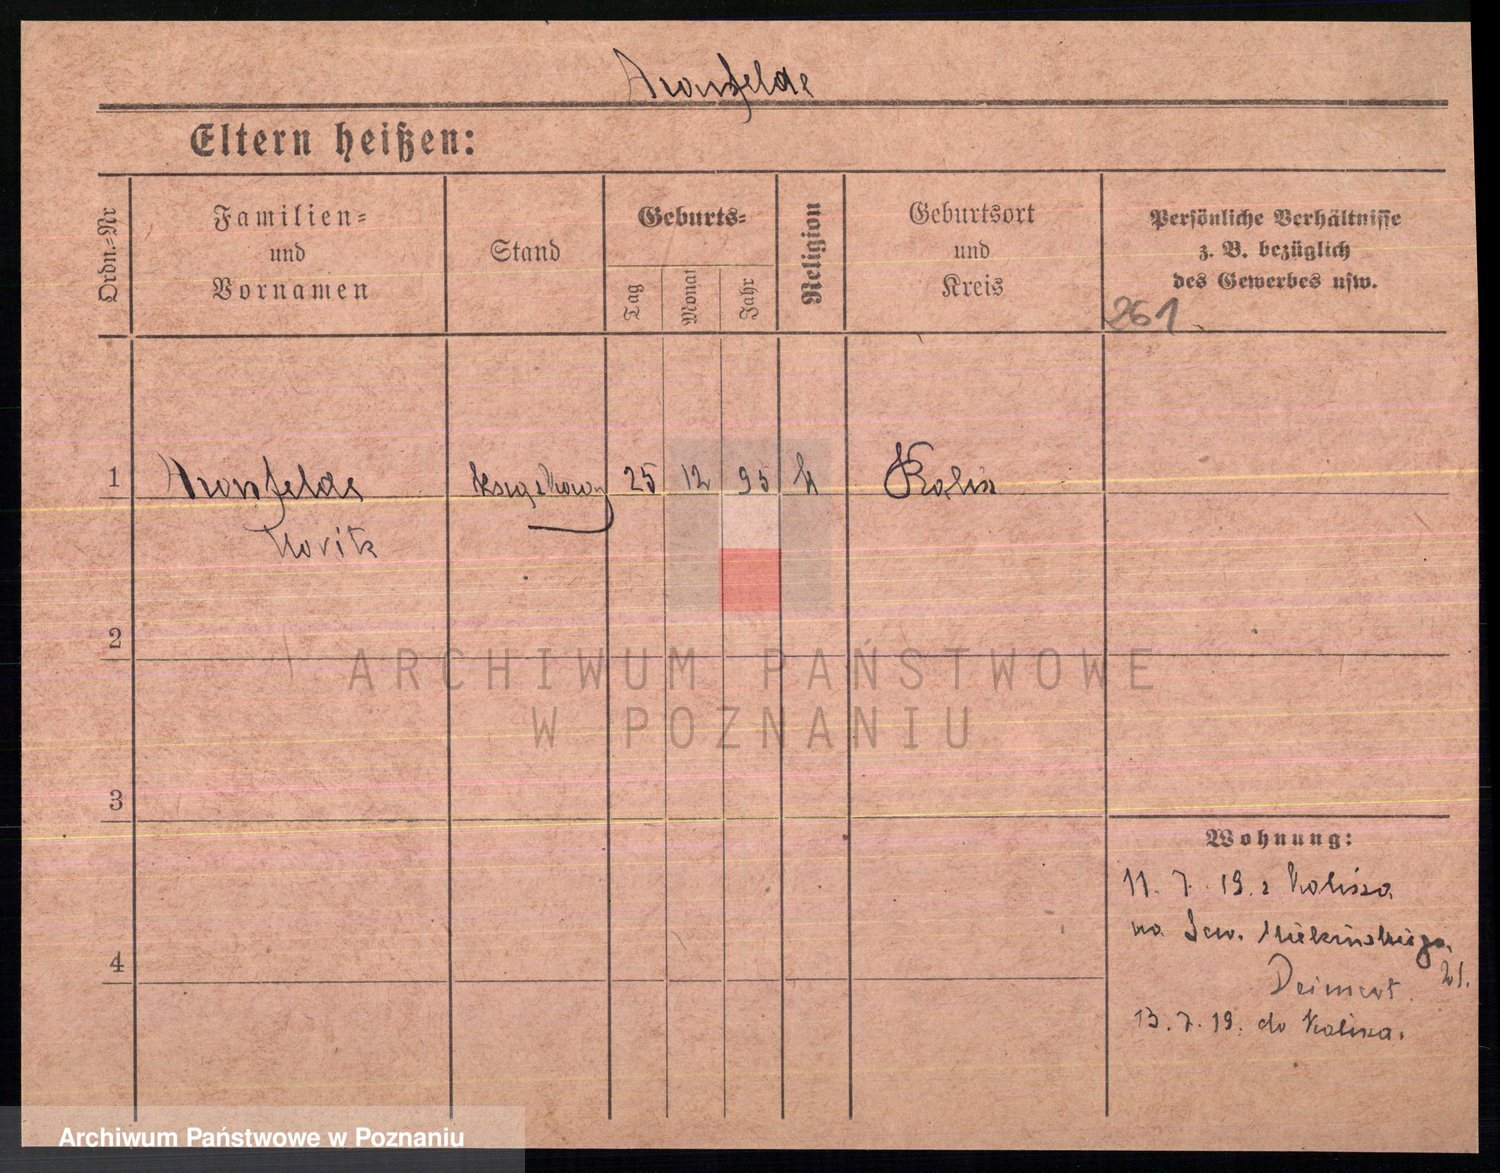 Aronsfelde
Eltern heißen:
Ordn.-Nr
Familien-
und
Vornamen
Stand
Geburts-
Tag
Monat
Jahr
Religion
Geburtsort
und
Kreis
Persönliche Verhältnisse
z. B. bezüglich
des Gewerbes usw.
261
1 Aronsfelde księgkowy 25 12 95 Kalisz
Moritz
2
3
4
Wohnung:
11. 7. 19. z Kalisza
na Sew. Mielżyńskiego
21.
13. 7. 19. do Kalisza.
ARCHIWUM PAŃSTWOWE
W POZNANIU
Archiwum Państwowe w Poznaniu